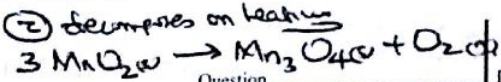 ② decomposes on heating
3 MnO₂(s) → Mn₃O₄(s) + O₂(g)
Question